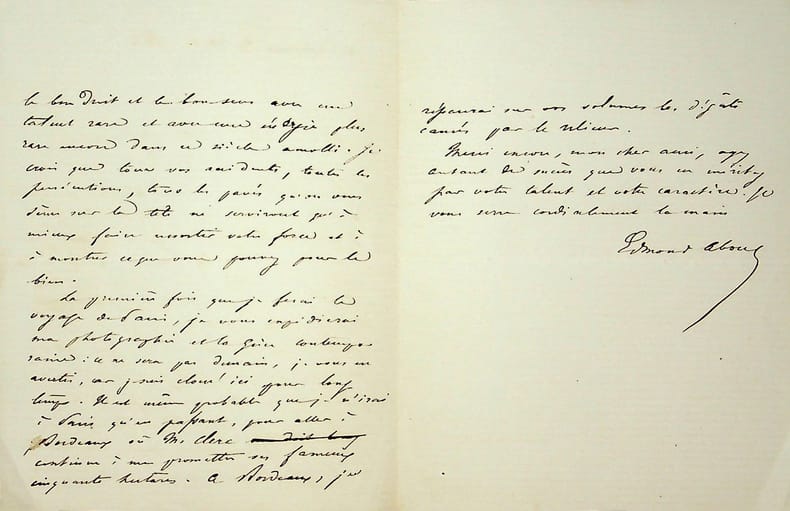 le bon droit et le bon sens avec un
talent rare et avec une énergie plus
rare encore dans ce siècle amolli. Je
crois que tous vos accidents, toutes les
persécutions, tous les pavés qu'on vous
sème sur la tête ne serviront qu'à
mieux faire ressortir votre force et à
à montrer ce que vous pouvez pour le
bien.
La première fois que je ferai le
voyage de Paris, je vous expédierai
ma photographie et la Grèce contempo-
raine : ce ne sera pas demain, je vous en
avertis, car je suis cloué ici pour long
temps. Il est même probable que je n'irai
à Paris qu'en passant, pour aller à
Bordeaux où Mr Clerc doit
continue à me promettre ses fameux
cinquante hectares. A Bordeaux, j'
réparerai sur vos volumes les dégâts
causés par le relieur.
Merci encore, mon cher ami, ayez
autant de succès que vous en méritez
par votre talent et votre caractère. Je
vous serre cordialement la main
Edmond About